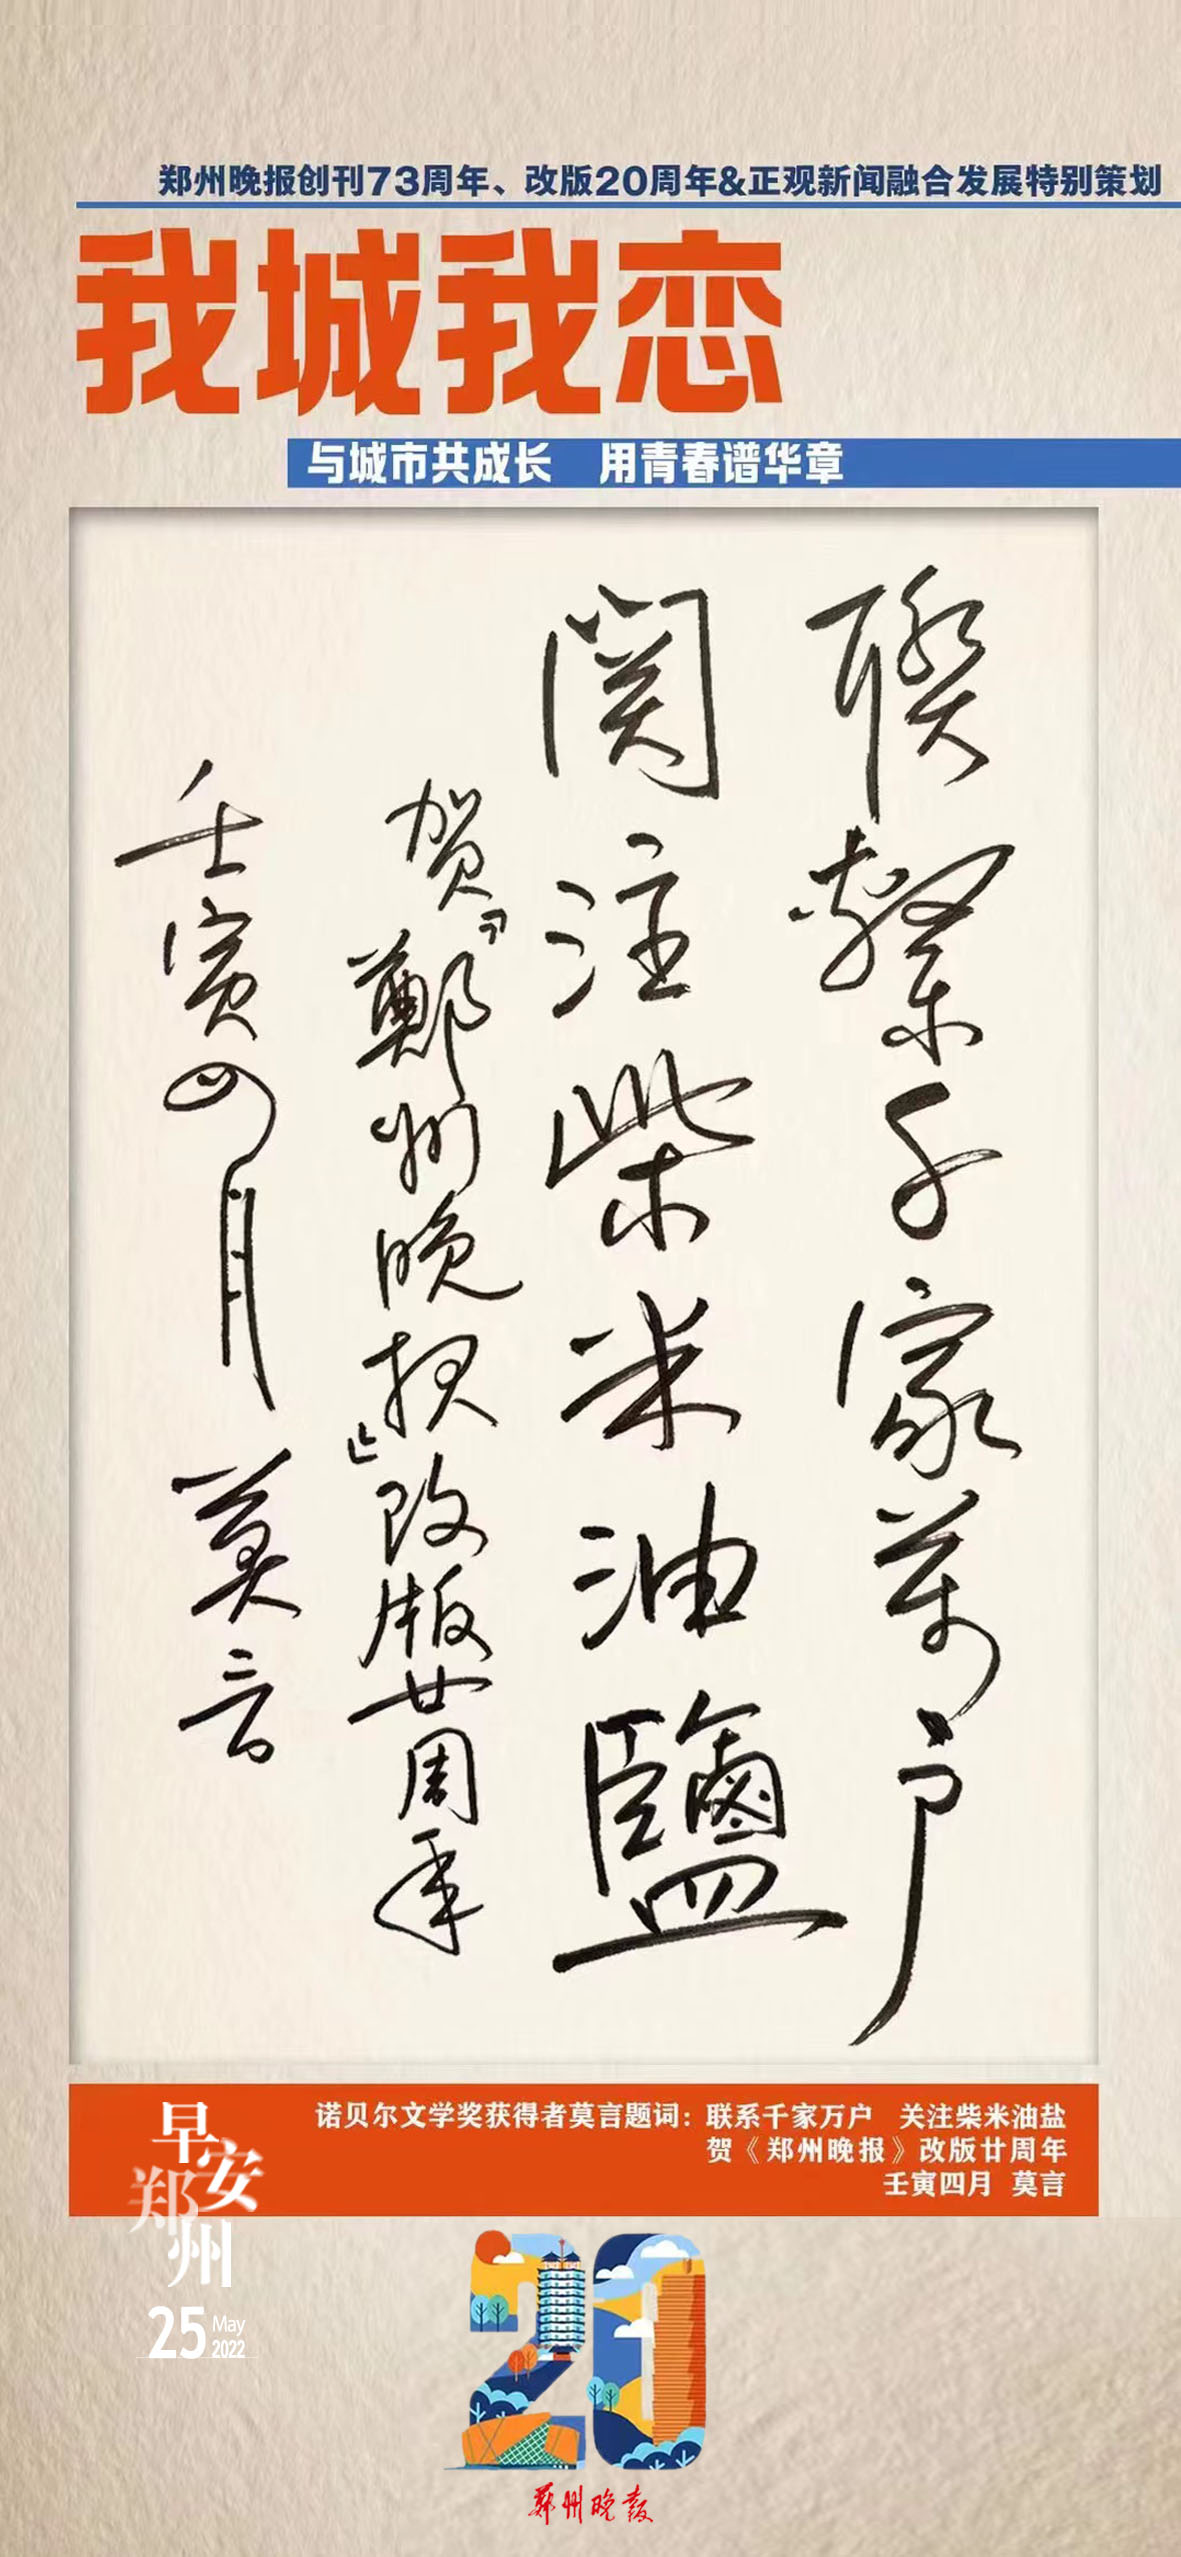 郑州晚报创刊73周年、改版20周年&正观新闻融合发展特别策划
我城我恋
与城市共成长 用青春谱华章
聯繫千家萬户
関注柴米油鹽
贺『鄭州晚报』改版廿周年
壬寅四月 莫言
诺贝尔文学奖获得者莫言题词：联系千家万户 关注柴米油盐
贺《郑州晚报》改版廿周年
壬寅四月 莫言
早安
郑州
25 May
2022
20
郑州晚报